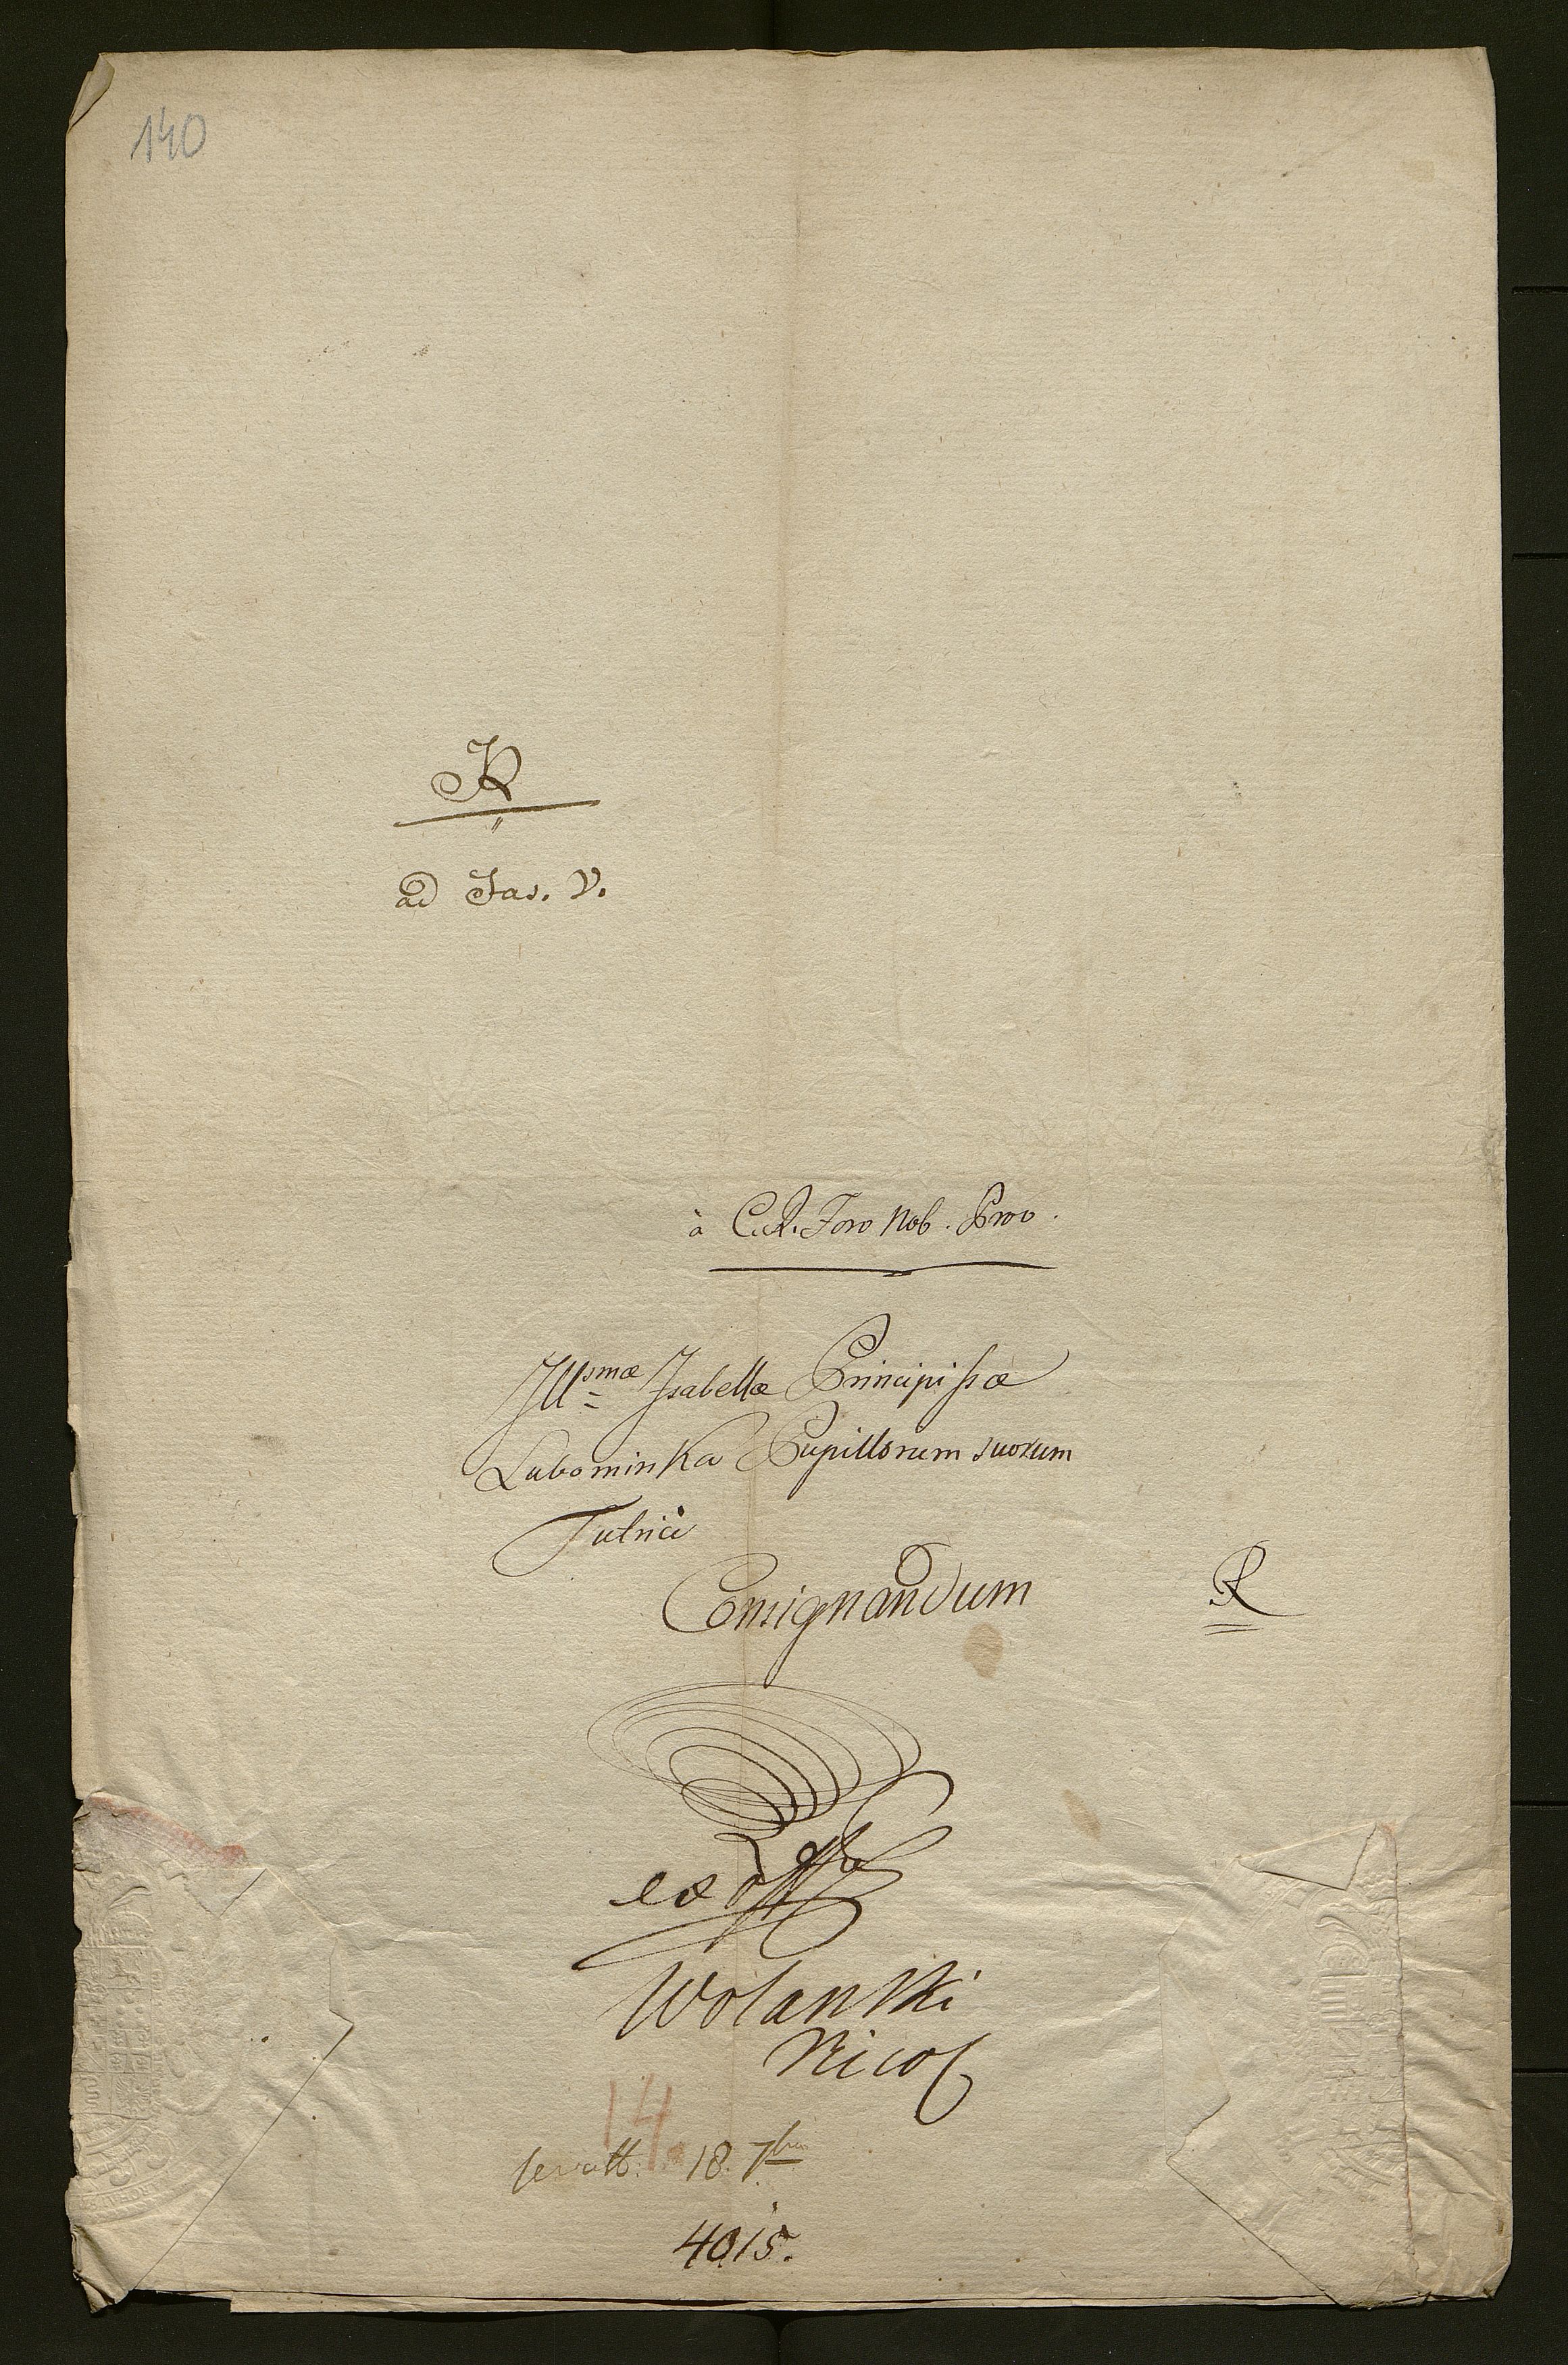 140
K
ad Fas. V.
à C. R. Foro Nob. Prov.
Illsmæ Isabellæ Principissæ
Lubomirska Pupillorum suorum
Tutrici
Consignandum R
ex offo
Wolanski
Nicol
14.
18. 7bris
4015.